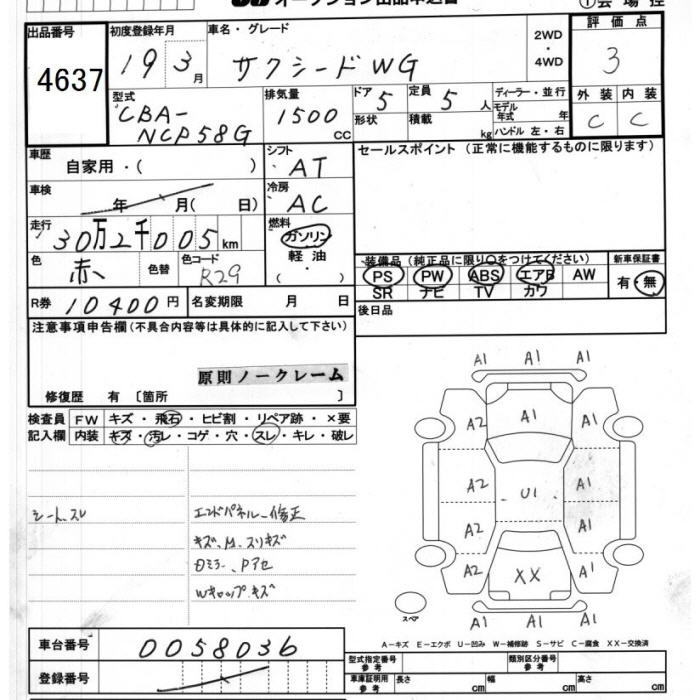 オークション出品申込書
①会場控
出品番号
4637
初度登録年月
19 3月
車名・グレード
サクシードWG
2WD
・
4WD
評価点
3
外装 内装
C C
型式
CBA-
NCP58G
排気量
1500
CC
ドア 5
形状
定員 5 人
積載 kg
ディーラー・並行
モデル年式 年
ハンドル 左・右
車歴
自家用・( )
シフト
AT
セールスポイント (正常に機能するものに限ります)
車検
年 月( 日)
冷房
AC
走行
30万2千005km
燃料
ガソリン
軽油
( ・ )
色
赤
色替
色コード
R29
装備品 (純正品に限り○をつけてください)
PS PW ABS エアB AW
SR ナビ TV カワ
新車保証書
有・無
R券 10400円
名変期限 月 日
後日品
注意事項申告欄(不具合内容等は具体的に記入して下さい)
原則ノークレーム
修復歴 有 〔箇所 〕
検査員
記入欄
FW キズ・飛石・ヒビ割・リペア跡・×要
内装 キズ・汚レ・コゲ・穴・スレ・キレ・破レ
シートスレ
エンドパネル修正
キズ、M、スリキズ
Wキャップキズ
A1 A1 A1
A2 A1 A1
A2 U1 A1
A2 A1
A2 XX A1
A1 A1 A1
スペア
A-キズ E-エクボ U-凹み W-補修跡 S-サビ C-腐食 XX-交換済
車台番号
0058036
登録番号
型式指定番号
参考
類別区分番号
参考
車庫証明用
参考
長さ cm
幅 cm
高さ cm